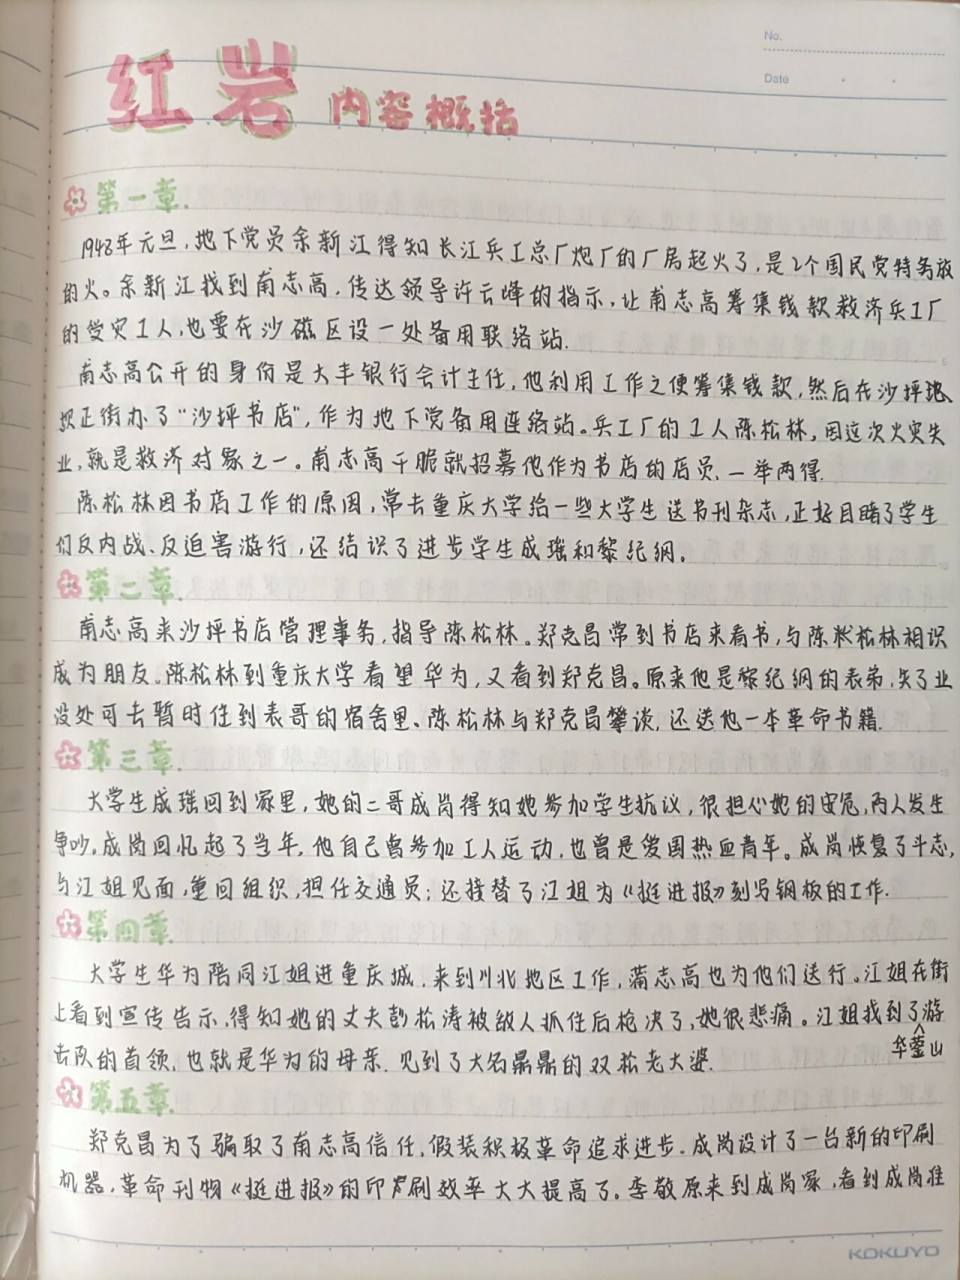 No.
Date
红岩 内容概括
第一章.
1948年元旦,地下党员余新江得知长江兵工总厂炮厂的厂房起火了,是2个国民党特务放
的火。余新江找到甫志高,传达领导许云峰的指示,让甫志高筹集钱款救济兵工厂
的受灾工人,也要在沙磁区设一处备用联络站.
甫志高公开的身份是大丰银行会计主任,他利用工作之便筹集钱款,然后在沙坪
坝正街办了“沙坪书店”,作为地下党备用连络站。兵工厂的工人陈松林,因这次火灾失
业,就是救济对象之一。甫志高干脆就招募他作为书店的店员,一举两得.
陈松林因书店工作的原因,常去重庆大学给一些大学生送书刊杂志,正好目睹了学生
们反内战、反迫害游行,还结识了进步学生成瑶和黎纪纲。
第二章.
甫志高来沙坪书店管理事务,指导陈松林。郑克昌常到书店来看书,与陈松林相识
成为朋友。陈松林到重庆大学看望华为,又看到郑克昌。原来他是黎纪纲的表弟,失了业
没处可去暂时住到表哥的宿舍里、陈松林与郑克昌攀谈,还送他一本革命书籍.
第三章.
大学生成瑶回到家里,她的二哥成岗得知她参加学生抗议,很担心她的安危,两人发生
争吵.成岗回忆起了当年,他自己曾参加工人运动,也曾是爱国热血青年。成岗恢复了斗志,
与江姐见面,重回组织,担任交通员;还接替了江姐为《挺进报》刻写钢板的工作.
第四章.
大学生华为陪同江姐进重庆城,来到川北地区工作,蒲志高也为他们送行。江姐在街
上看到宣传告示,得知她的丈夫彭松涛被敌人抓住后枪决了,她很悲痛。江姐找到了华蓥山游
击队的首领,也就是华为的母亲.见到了大名鼎鼎的双松老太婆.
第五章.
郑克昌为了骗取了甫志高信任,假装积极革命追求进步.成岗设计了一台新的印刷
机器,革命刊物《挺进报》的印刷效率大大提高了。李敬原来到成岗家,看到成岗准
KOKUYO